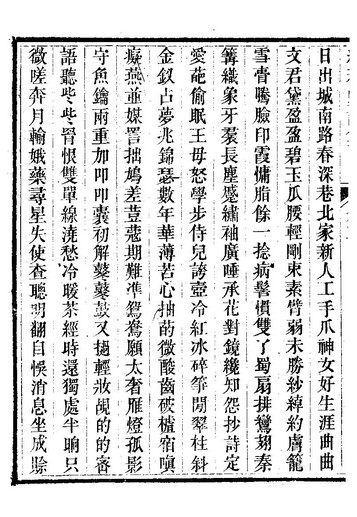 日出城南路春深巷北家新人工手爪神女好生涯曲曲
文君黛盈盈碧玉瓜腰輕剛束素臂弱未勝紗綽約膚籠
雪青騰臉印霞慵脂餘一捻病髻慣雙了蜀扇排鸞翅秦
篝織象牙羣長塵蹙繡袖廣唾承花對鏡纔知怨抄詩定
愛葩偷眠王母怒學步侍兒誇壼冷紅冰碎箏閒翠柱斜
金釵占夢兆錦瑟數年華薄苦心抽萌微酸齒破樝宿嗔
癡燕並媒詈拙鳩差荳蔻期難準鴛鴦願太奢雁燈孤影
守魚鑰兩重加叩叩囊初解鼕鼕鼓又撾輕妝靚的的審
語聽些些胥恨雙單線澆愁冷暖茶經時還獨處半晌只
微嗟奔月輸娥藥尋星失使查聰明翻自悞消息坐成賒